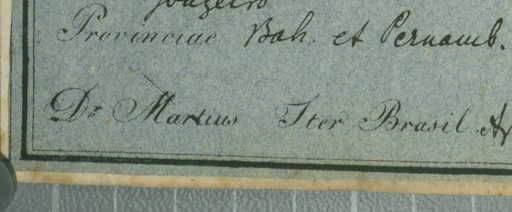 Provinciae Bah. et Pernamb.
Dr. Martius Iter Brasil